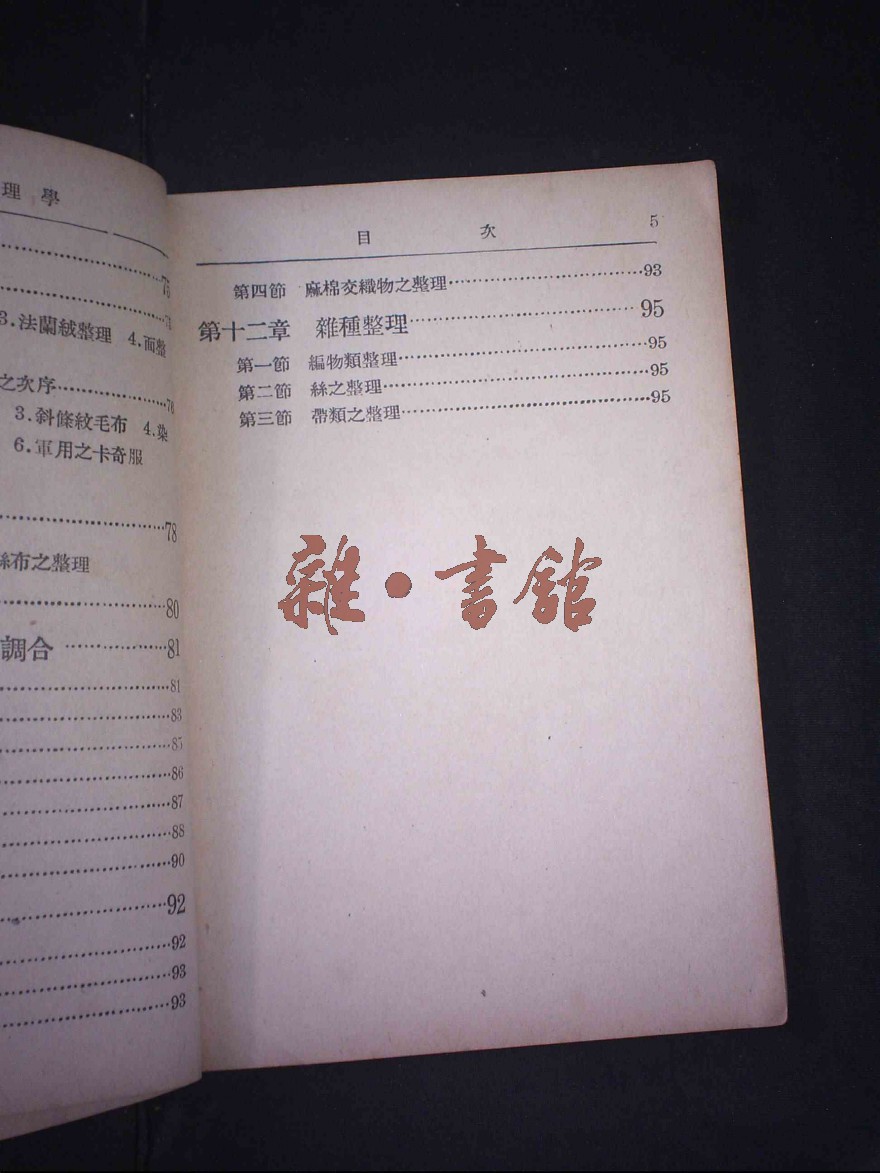 理學
75
75
3.法蘭絨整理 4.面整
之次序……………76
3.斜條紋毛布 4.染
6.軍用之卡奇服
78
絲布之整理
80
調合……………81
81
83
85
86
87
88
90
92
92
93
93
目 次 5
第四節 麻棉交織物之整理……………93
第十二章 雜種整理……………95
第一節 編物類整理……………95
第二節 絲之整理……………95
第三節 帶類之整理……………95
雜·書館